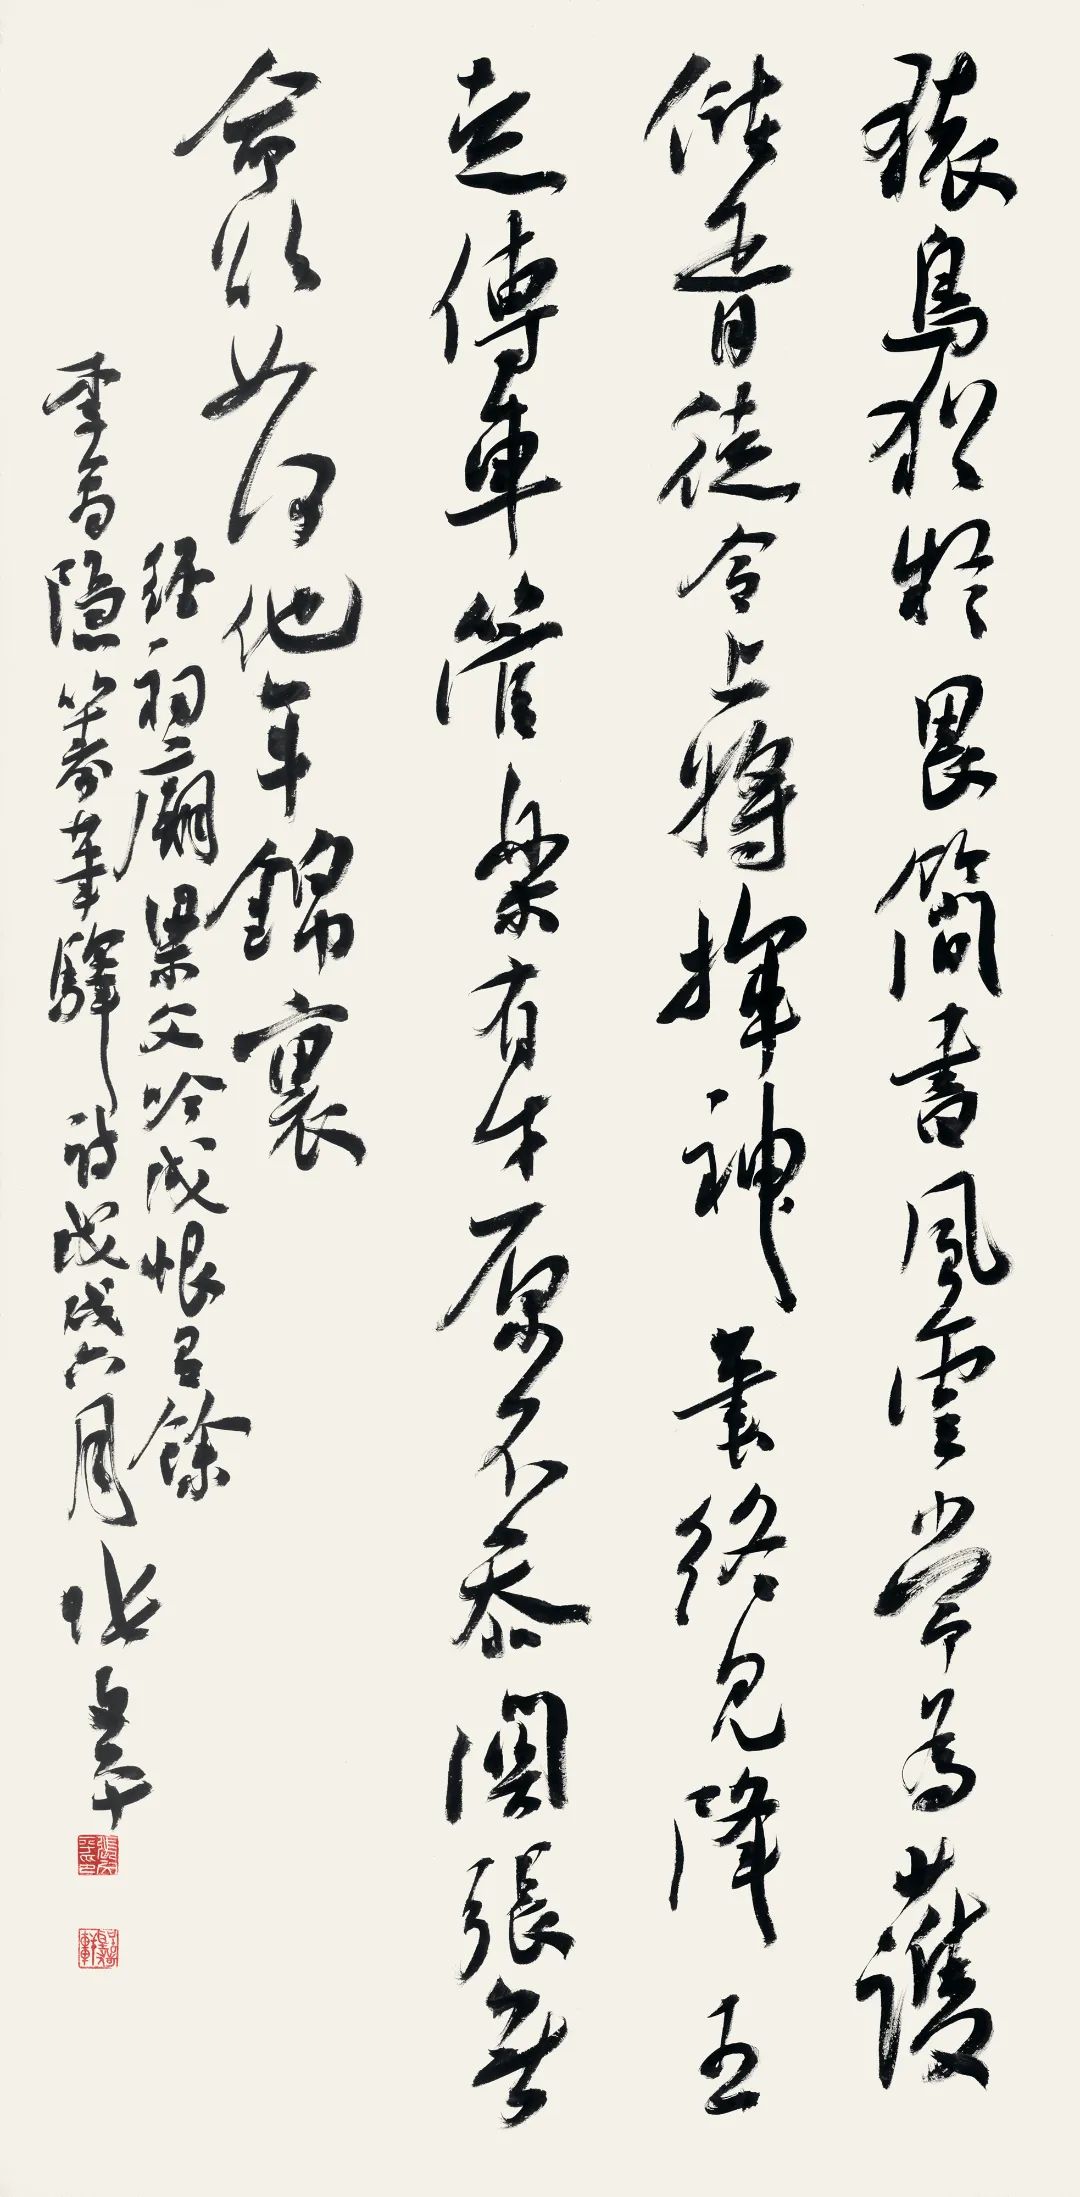 猿鳥猶疑畏簡書風雲常為護
儲胥徒令上將揮神筆終見降王
走傳車管樂有才原不忝關張無
命欲如何他年錦裏
經祠廟梁父吟成恨有餘
李商隱籌筆驛詩戊戌六月張